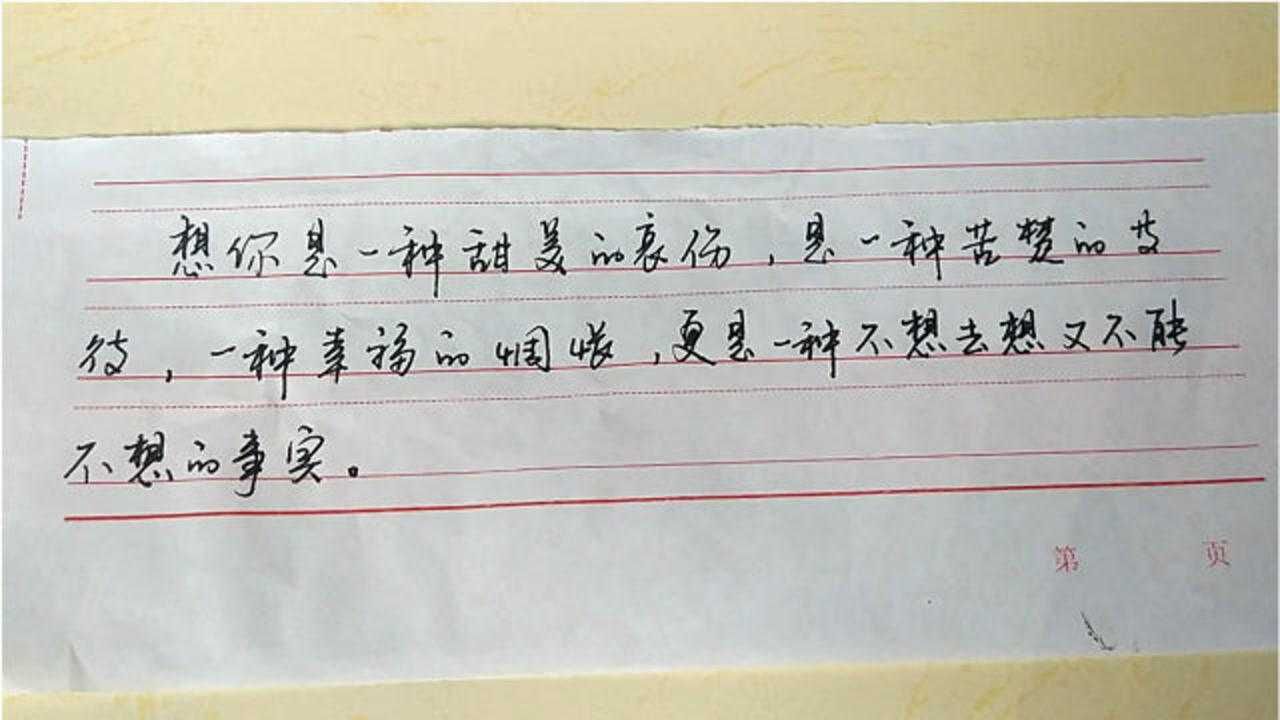 想你是一种甜美的哀伤，是一种苦楚的
，一种幸福的惆怅，更是一种不想去想又不能
不想的事实。
第 页